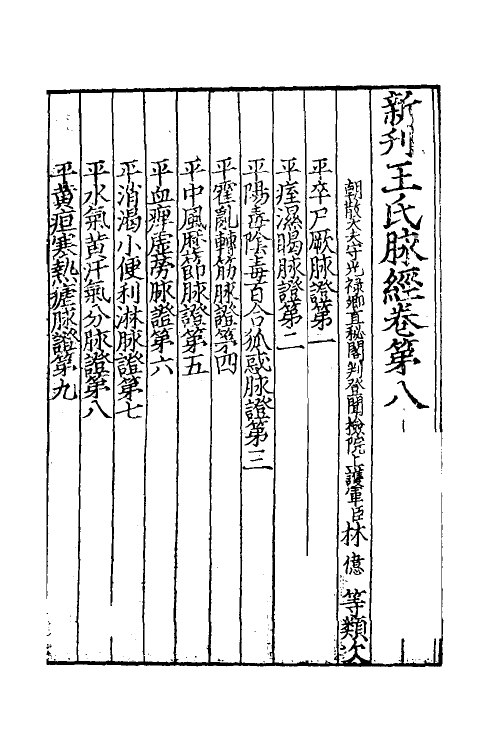 新刊王氏脉經卷第八
朝散大夫守光祿卿直秘閣判登聞檢院上護軍臣林億等類次
平卒尸厥脉證第一
平痓濕暍脉證第二
平陽毒陰毒百合狐惑脉證第三
平霍亂轉筋脉證第四
平中風歷節脉證第五
平血痹虛勞脉證第六
平消渴小便利淋脉證第七
平水氣黃汗氣分脉證第八
平黃疸寒熱瘧脉證第九